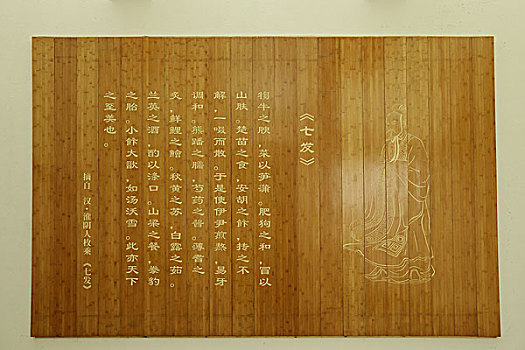 《七发》
犓牛之腴，菜以笋蒲。肥狗之和，冒以
山肤。楚苗之食，安胡之飰，抟之不
解，一啜而散。于是使伊尹煎熬，易牙
调和。熊蹯之臑，芍药之酱。薄耆之
炙，鲜鲤之鲙。秋黄之苏，白露之茹。
兰英之酒，酌以涤口。山梁之餐，豢豹
之胎。小飰大歠，如汤沃雪。此亦天下
之至美也。
摘自 汉·淮阴人枚乘《七发》